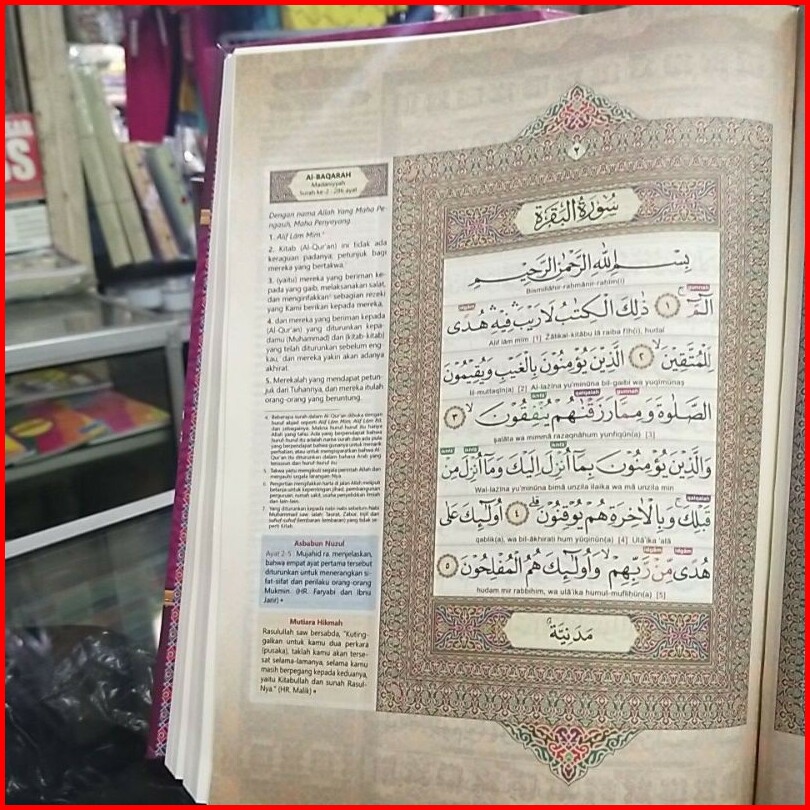 Al-BAQARAH
Madaniyyah
Surah ke-2 : 286 ayat
Dengan nama Allah Yang Maha Pe-
ngasih, Maha Penyayang
1. Alif Lām Mīm.⁴
2. Kitab (Al-Qur'an) ini tidak ada
keraguan padanya; petunjuk bagi
mereka yang bertakwa,⁵
3. (yaitu) mereka yang beriman ke-
pada yang gaib, melaksanakan salat,
dan menginfakkan⁶ sebagian rezeki
yang Kami berikan kepada mereka,
4. dan mereka yang beriman kepada
(Al-Qur'an) yang diturunkan kepa-
damu (Muhammad) dan (kitab-kitab)
yang telah diturunkan sebelum eng-
kau,⁷ dan mereka yakin akan adanya
akhirat.
5. Merekalah yang mendapat petun-
juk dari Tuhannya, dan mereka itulah
orang-orang yang beruntung.
Asbabun Nuzul
Ayat 2-5 : Mujahid ra. menjelaskan,
bahwa empat ayat pertama tersebut
diturunkan untuk menerangkan si-
fat-sifat dan perilaku orang-orang
Mukmin. (HR. Faryabi dan Ibnu
Jarir)
Mutiara Hikmah
Rasulullah saw bersabda, "Kuting-
galkan untuk kamu dua perkara
(pusaka), taklah kamu akan terse-
sat selama-lamanya, selama kamu
masih berpegang kepada keduanya,
yaitu Kitabullah dan sunah Rasul-
Nya." (HR. Malik)
٢
سُوْرَةُ الْبَقَرَةِ
بِسْمِ اللهِ الرَّحْمٰنِ الرَّحِيْمِ
Bismillāhir-raḥmānir-raḥīm(i)
الۤمّۤ ۚ ١ ذٰلِكَ الْكِتٰبُ لَا رَيْبَ ۛ فِيْهِ ۛ هُدًى
Alif lām mīm [1] Żālikal-kitābu lā raiba fīh(i), hudal
لِّلْمُتَّقِيْنَ ۙ ٢ الَّذِيْنَ يُؤْمِنُوْنَ بِالْغَيْبِ وَيُقِيْمُوْنَ
lil-muttaqīn(a) [2] Al-lażīna yu'minūna bil-gaibi wa yuqīmūnaṣ
الصَّلٰوةَ وَمِمَّا رَزَقْنٰهُمْ يُنْفِقُوْنَ ۙ ٣
ṣalāta wa mimmā razaqnāhum yunfiqūn(a) [3]
وَالَّذِيْنَ يُؤْمِنُوْنَ بِمَآ اُنْزِلَ اِلَيْكَ وَمَآ اُنْزِلَ مِنْ
Wal-lażīna yu'minūna bimā unzila ilaika wa mā unzila min
قَبْلِكَ ۚ وَبِالْاٰخِرَةِ هُمْ يُوْقِنُوْنَ ۗ ٤ اُولٰۤىِٕكَ عَلٰى
qablik(a), wa bil-ākhirati hum yūqinūn(a) [4] Ulā'ika 'alā
هُدًى مِّنْ رَّبِّهِمْ ۙ وَاُولٰۤىِٕكَ هُمُ الْمُفْلِحُوْنَ ٥
hudam mir rabbihim, wa ulā'ika humul-mufliḥūn(a) [5]
مَدَنِيَّةٌ